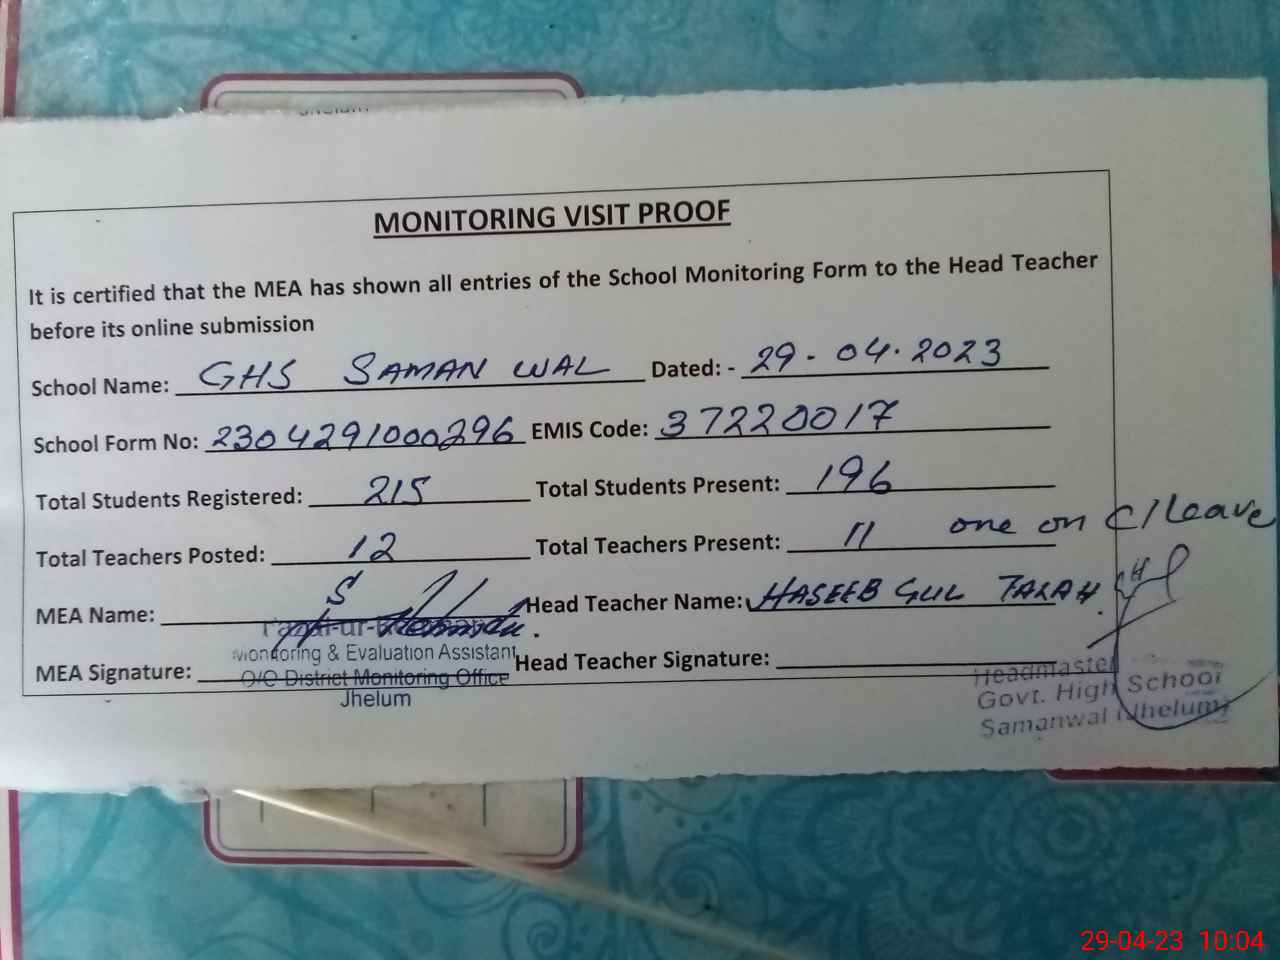 Jhelum
MONITORING VISIT PROOF
It is certified that the MEA has shown all entries of the School Monitoring Form to the Head Teacher
before its online submission
School Name: GHS SAMAN WAL Dated: - 29-04.2023
School Form No: 230429100296 EMIS Code: 37220017
Total Students Registered: 215 Total Students Present: 196
Total Teachers Posted: 12 Total Teachers Present: 11 one on C/Leave
MEA Name: Head Teacher Name: HASEEB GUL
Monitoring & Evaluation Assistant
MEA Signature: O/O District Monitoring Office Head Teacher Signature:
Jhelum
Headmaster
Govt. High School
Samanwal (Jhelum)
29-04-23 10:04